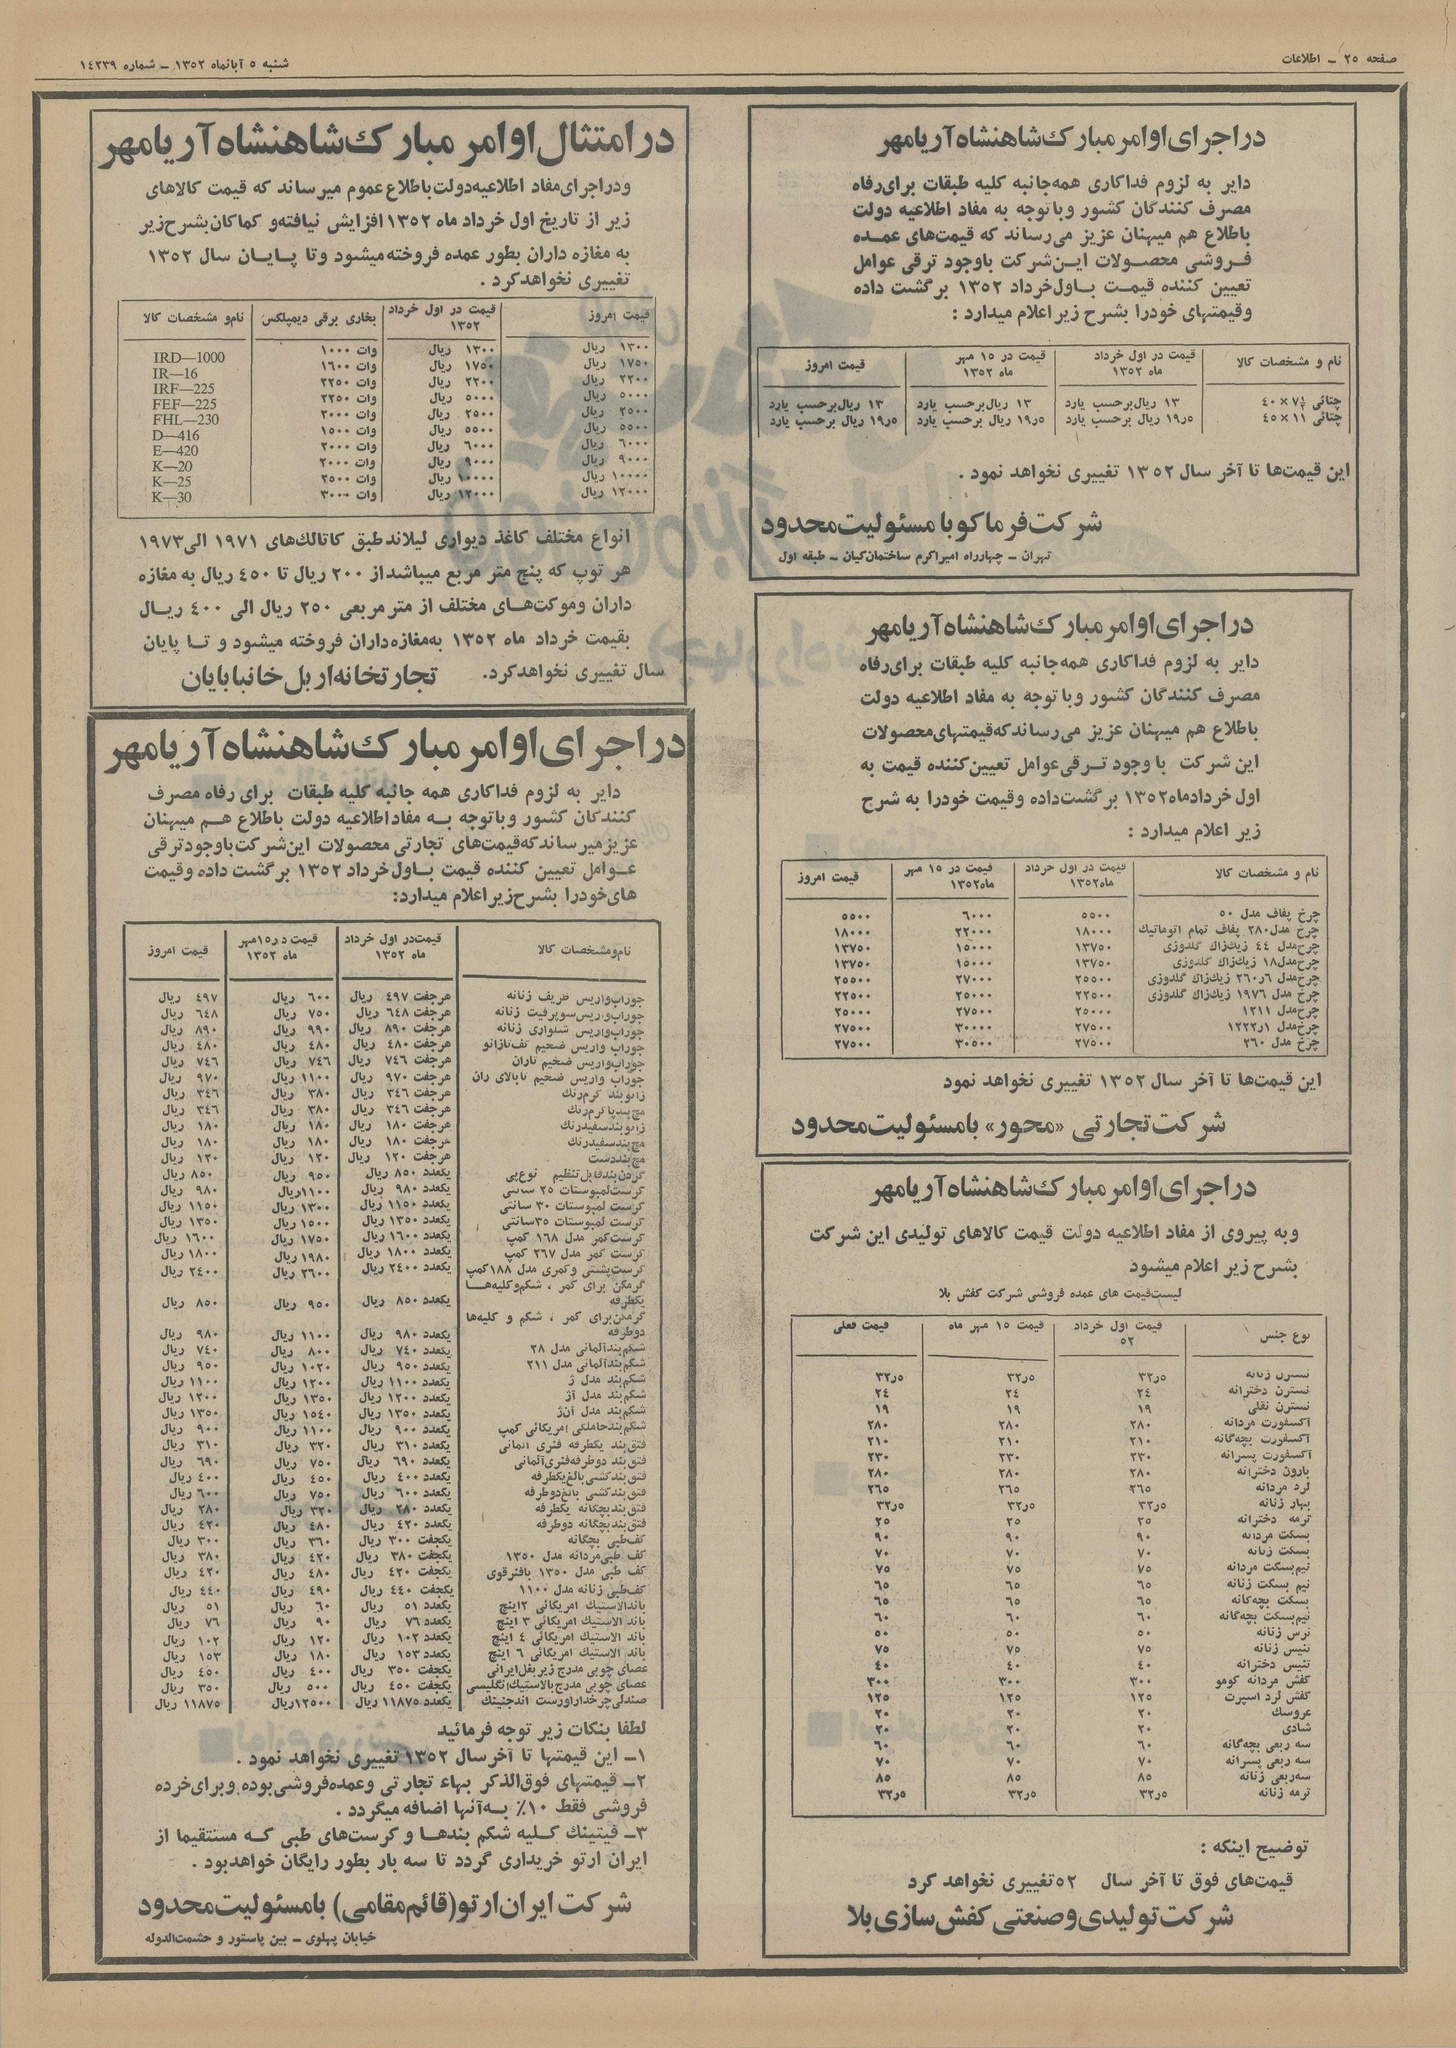 صفحه ۲۵ ــ اطلاعات
شنبه ۵ آبانماه ۱۳۵۲ ــ شماره ۱٤۲۳۹
در اجرای اوامر مبارک شاهنشاه آریامهر
دایر به لزوم فداکاری همه‌جانبه کلیه طبقات برای رفاه
مصرف کنندگان کشور و با توجه به مفاد اطلاعیه دولت
باطلاع هم میهنان عزیز می‌رساند که قیمت‌های عمده
فروشی محصولات این شرکت باوجود ترقی عوامل
تعیین کننده قیمت باول خرداد ۱۳۵۲ برگشت داده
وقیمتهای خودرا بشرح زیر اعلام میدارد :
نام و مشخصات کالا | قیمت در اول خرداد ماه ۱۳۵۲ | قیمت در ۱۵ مهر ماه ۱۳۵۲ | قیمت امروز
چتائی ۷½ × ٤۰ | ۱۳ ریال برحسب یارد | ۱۳ ریال برحسب یارد | ۱۳ ریال برحسب یارد
چتائی ۱۱ × ٤۵ | ۱۹٫۵ ریال برحسب یارد | ۱۹٫۵ ریال برحسب یارد | ۱۹٫۵ ریال برحسب یارد
این قیمت‌ها تا آخر سال ۱۳۵۲ تغییری نخواهد نمود .
شرکت فرماکو با مسئولیت محدود
تهران ــ چهارراه امیراکرم ساختمان کیان ــ طبقه اول
در اجرای اوامر مبارک شاهنشاه آریامهر
دایر به لزوم فداکاری همه جانبه کلیه طبقات برای رفاه
مصرف کنندگان کشور و با توجه به مفاد اطلاعیه دولت
باطلاع هم میهنان عزیز می‌رساند که قیمتهای محصولات
این شرکت با وجود ترقی عوامل تعیین کننده قیمت به
اول خرداد ماه ۱۳۵۲ برگشت داده و قیمت خودرا به شرح
زیر اعلام میدارد :
نام و مشخصات کالا | قیمت در اول خرداد ماه ۱۳۵۲ | قیمت در ۱۵ مهر ماه ۱۳۵۲ | قیمت امروز
چرخ پفاف مدل ۵۰ | ۵۵۰۰ | ۶۰۰۰ | ۵۵۰۰
چرخ مدل ۲۸۰ پفاف تمام اتوماتیک | ۱۸۰۰۰ | ۲۲۰۰۰ | ۱۸۰۰۰
چرخ مدل ٤٤ زیک‌زاک گلدوزی | ۱۳۷۵۰ | ۱۵۰۰۰ | ۱۳۷۵۰
چرخ مدل ۱۸ زیک‌زاک گلدوزی | ۱۳۷۵۰ | ۱۵۰۰۰ | ۱۳۷۵۰
چرخ مدل ۶ر۲۶۰ زیک‌زاک گلدوزی | ۲۵۵۰۰ | ۲۷۰۰۰ | ۲۵۵۰۰
چرخ مدل ۱۹۷۶ زیک‌زاک گلدوزی | ۲۲۵۰۰ | ۲۵۰۰۰ | ۲۲۵۰۰
چرخ مدل ۱۲۱۱ | ۲۵۰۰۰ | ۲۷۵۰۰ | ۲۵۰۰۰
چرخ مدل ۱ر۱۲۲۲ | ۲۷۵۰۰ | ۳۰۰۰۰ | ۲۷۵۰۰
چرخ مدل ۲۶۰ | ۲۷۵۰۰ | ۳۰۵۰۰ | ۲۷۵۰۰
این قیمت‌ها تا آخر سال ۱۳۵۲ تغییری نخواهد نمود
شرکت تجارتی «محور» با مسئولیت محدود
در اجرای اوامر مبارک شاهنشاه آریامهر
وبه پیروی از مفاد اطلاعیه دولت قیمت کالاهای تولیدی این شرکت
بشرح زیر اعلام میشود
لیست قیمت های عمده فروشی شرکت کفش بلا
نوع جنس | قیمت اول خرداد ۵۲ | قیمت ۱۵ مهر ماه | قیمت فعلی
نسترن زنانه | ۳۲٫۵ | ۳۲٫۵ | ۳۲٫۵
نسترن دخترانه | ۲٤ | ۲٤ | ۲٤
نسترن نقلی | ۱۹ | ۱۹ | ۱۹
آکسفورت مردانه | ۲۸۰ | ۲۸۰ | ۲۸۰
آکسفورت بچه‌گانه | ۲۱۰ | ۲۱۰ | ۲۱۰
آکسفورت پسرانه | ۲۳۰ | ۲۳۰ | ۲۳۰
بارون دخترانه | ۲۸۰ | ۲۸۰ | ۲۸۰
لرد مردانه | ۲۶۵ | ۲۶۵ | ۲۶۵
بهار زنانه | ۳۲٫۵ | ۳۲٫۵ | ۳۲٫۵
ترمه دخترانه | ۲۵ | ۲۵ | ۲۵
بسکت مردانه | ۹۰ | ۹۰ | ۹۰
بسکت زنانه | ۷۰ | ۷۰ | ۷۰
نیم‌بسکت مردانه | ۷۵ | ۷۵ | ۷۵
نیم بسکت زنانه | ۶۵ | ۶۵ | ۶۵
بسکت بچه‌گانه | ۶۵ | ۶۵ | ۶۵
نیم‌بسکت بچه‌گانه | ۶۰ | ۶۰ | ۶۰
نرس زنانه | ۵۰ | ۵۰ | ۵۰
تنیس زنانه | ۷۵ | ۷۵ | ۷۵
تنیس دخترانه | ٤۰ | ٤۰ | ٤۰
کفش مردانه کومو | ۳۰۰ | ۳۰۰ | ۳۰۰
کفش لرد اسپرت | ۱۲۵ | ۱۲۵ | ۱۲۵
عروسک | ۲۰ | ۲۰ | ۲۰
شادی | ۲۰ | ۲۰ | ۲۰
سه ربعی بچه‌گانه | ۶۰ | ۶۰ | ۶۰
سه ربعی پسرانه | ۷۰ | ۷۰ | ۷۰
سه‌ربعی زنانه | ۸۵ | ۸۵ | ۸۵
ترمه زنانه | ۳۲٫۵ | ۳۲٫۵ | ۳۲٫۵
توضیح اینکه :
قیمت‌های فوق تا آخر سال ۵۲ تغییری نخواهد کرد
شرکت تولیدی وصنعتی کفش سازی بلا
در امتثال اوامر مبارک شاهنشاه آریامهر
ودراجرای مفاد اطلاعیه دولت باطلاع عموم میرساند که قیمت کالاهای
زیر از تاریخ اول خرداد ماه ۱۳۵۲ افزایش نیافته و کماکان بشرح زیر
به مغازه داران بطور عمده فروخته میشود وتا پایان سال ۱۳۵۲
تغییری نخواهدکرد .
قیمت امروز | قیمت در اول خرداد ۱۳۵۲ | بخاری برقی دیمپلکس | نام و مشخصات کالا
۱۳۰۰ ریال | ۱۳۰۰ ریال | ۱۰۰۰ وات | IRD—1000
۱۷۵۰ ریال | ۱۷۵۰ ریال | ۱۶۰۰ وات | IR—16
۲۲۰۰ ریال | ۲۲۰۰ ریال | ۲۲۵۰ وات | IRF—225
۵۰۰۰ ریال | ۵۰۰۰ ریال | ۲۲۵۰ وات | FEF—225
۲۵۰۰ ریال | ۲۵۰۰ ریال | ۲۰۰۰ وات | FHL—230
۵۵۰۰ ریال | ۵۵۰۰ ریال | ۱۵۰۰ وات | D—416
۶۰۰۰ ریال | ۶۰۰۰ ریال | ۲۰۰۰ وات | E—420
۹۰۰۰ ریال | ۹۰۰۰ ریال | ۲۰۰۰ وات | K—20
۱۰۰۰۰ ریال | ۱۰۰۰۰ ریال | ۲۵۰۰ وات | K—25
۱۲۰۰۰ ریال | ۱۲۰۰۰ ریال | ۳۰۰۰ وات | K—30
انواع مختلف کاغذ دیواری لیلاند طبق کاتالک‌های ۱۹۷۱ الی ۱۹۷۳
هر توپ که پنج متر مربع میباشد از ۲۰۰ ریال تا ٤۵۰ ریال به مغازه
داران وموکت‌های مختلف از متر مربعی ۲۵۰ ریال الی ٤۰۰ ریال
بقیمت خرداد ماه ۱۳۵۲ به‌مغازه‌داران فروخته میشود و تا پایان
سال تغییری نخواهدکرد. تجارتخانه اربل خانبابایان
در اجرای اوامر مبارک شاهنشاه آریامهر
دایر به لزوم فداکاری همه جانبه کلیه طبقات برای رفاه مصرف
کنندگان کشور و با توجه به مفاد اطلاعیه دولت باطلاع هم میهنان
عزیز میرساند که قیمت‌های تجارتی محصولات این شرکت با وجود ترقی
عوامل تعیین کننده قیمت باول خرداد ۱۳۵۲ برگشت داده وقیمت
های خودرا بشرح زیر اعلام میدارد:
نام و مشخصات کالا | قیمت در اول خرداد ماه ۱۳۵۲ | قیمت در ۱۵ مهر ماه ۱۳۵۲ | قیمت امروز
جوراب واریس ظریف زنانه | هرجفت ٤۹۷ ریال | ۶۰۰ ریال | ٤۹۷ ریال
جوراب واریس سوپرفیت زنانه | هرجفت ۶٤۸ ریال | ۷۵۰ ریال | ۶٤۸ ریال
جوراب واریس شلواری زنانه | هرجفت ۸۹۰ ریال | ۹۹۰ ریال | ۸۹۰ ریال
جوراب واریس ضخیم کف تا زانو | هرجفت ٤۸۰ ریال | ٤۸۰ ریال | ٤۸۰ ریال
جوراب واریس ضخیم تا ران | هرجفت ۷٤۶ ریال | ۷٤۶ ریال | ۷٤۶ ریال
جوراب واریس ضخیم تا بالای ران | هرجفت ۹۷۰ ریال | ۱۱۰۰ ریال | ۹۷۰ ریال
زانوبند کرم‌رنگ | هرجفت ۳٤۶ ریال | ۳۸۰ ریال | ۳٤۶ ریال
مچ‌بند پا کرم رنک | هرجفت ۳٤۶ ریال | ۳۸۰ ریال | ۳٤۶ ریال
زانوبند سفیدرنک | هرجفت ۱۸۰ ریال | ۱۸۰ ریال | ۱۸۰ ریال
مچ‌بند سفیدرنک | هرجفت ۱۸۰ ریال | ۱۸۰ ریال | ۱۸۰ ریال
مچ‌بند دست | هرجفت ۱۲۰ ریال | ۱۲۰ ریال | ۱۲۰ ریال
گردن بند قابل تنظیم نوع‌بی | یکعدد ۸۵۰ ریال | ۹۵۰ ریال | ۸۵۰ ریال
کرست لمبوستات ۲۵ سانتی | یکعدد ۹۸۰ ریال | ۱۱۰۰ ریال | ۹۸۰ ریال
کرست لمبوستات ۳۰ سانتی | یکعدد ۱۱۵۰ ریال | ۱۳۰۰ ریال | ۱۱۵۰ ریال
کرست لمبوستات ۳۵ سانتی | یکعدد ۱۳۵۰ ریال | ۱۵۰۰ ریال | ۱۳۵۰ ریال
کرست کمر مدل ۱۶۸ کمپ | یکعدد ۱۶۰۰ ریال | ۱۷۵۰ ریال | ۱۶۰۰ ریال
کرست کمر مدل ۲۶۷ کمپ | یکعدد ۱۸۰۰ ریال | ۱۹۸۰ ریال | ۱۸۰۰ ریال
کرست پشتی وکمری مدل ۱۸۸ کمپ | یکعدد ۲٤۰۰ ریال | ۲۶۰۰ ریال | ۲٤۰۰ ریال
گرمکن برای کمر ، شکم وکلیه‌ها یکطرفه | یکعدد ۸۵۰ ریال | ۹۵۰ ریال | ۸۵۰ ریال
گرمکن برای کمر ، شکم و کلیه‌ها دوطرفه | یکعدد ۹۸۰ ریال | ۱۱۰۰ ریال | ۹۸۰ ریال
شکم‌بند آلمانی مدل ۲۸ | یکعدد ۷٤۰ ریال | ۸۰۰ ریال | ۷٤۰ ریال
شکم‌بند آلمانی مدل ۲۱۱ | یکعدد ۹۵۰ ریال | ۱۰۲۰ ریال | ۹۵۰ ریال
شکم‌بند مدل ژ | یکعدد ۱۱۰۰ ریال | ۱۲۰۰ ریال | ۱۱۰۰ ریال
شکم‌بند مدل آژ | یکعدد ۱۲۰۰ ریال | ۱۳۵۰ ریال | ۱۲۰۰ ریال
شکم‌بند مدل آن‌ژ | یکعدد ۱۳۵۰ ریال | ۱۵٤۰ ریال | ۱۳۵۰ ریال
شکم‌بند حاملگی امریکائی کمپ | یکعدد ۹۰۰ ریال | ۱۱۰۰ ریال | ۹۰۰ ریال
فتق‌بند یکطرفه فنری آلمانی | یکعدد ۳۱۰ ریال | ۳۲۰ ریال | ۳۱۰ ریال
فتق‌بند دوطرفه فنری آلمانی | یکعدد ۶۹۰ ریال | ۷۵۰ ریال | ۶۹۰ ریال
فتق‌بند کشی بالغ یکطرفه | یکعدد ٤۰۰ ریال | ٤۵۰ ریال | ٤۰۰ ریال
فتق‌بند کشی بالغ دوطرفه | یکعدد ۶۰۰ ریال | ۷۵۰ ریال | ۶۰۰ ریال
فتق‌بند بچگانه یکطرفه | یکعدد ۲۸۰ ریال | ۳۲۰ ریال | ۲۸۰ ریال
فتق‌بند بچگانه دوطرفه | یکعدد ٤۲۰ ریال | ٤۸۰ ریال | ٤۲۰ ریال
کف‌طبی بچگانه | یکجفت ۳۰۰ ریال | ۳۶۰ ریال | ۳۰۰ ریال
کف طبی مردانه مدل ۱۳۵۰ | یکجفت ۳۸۰ ریال | ٤۲۰ ریال | ۳۸۰ ریال
کف طبی مدل ۱۳۵۰ بافنرقوی | یکجفت ٤۲۰ ریال | ٤۸۰ ریال | ٤۲۰ ریال
کف‌طبی زنانه مدل ۱۱۰۰ | یکجفت ٤٤۰ ریال | ٤۹۰ ریال | ٤٤۰ ریال
باند الاستیک امریکائی ۲ اینچ | یکعدد ۵۱ ریال | ۶۰ ریال | ۵۱ ریال
باند الاستیک امریکائی ۳ اینچ | یکعدد ۷۶ ریال | ۹۰ ریال | ۷۶ ریال
باند الاستیک امریکائی ٤ اینچ | یکعدد ۱۰۲ ریال | ۱۲۰ ریال | ۱۰۲ ریال
باند الاستیک امریکائی ۶ اینچ | یکعدد ۱۵۳ ریال | ۱۸۰ ریال | ۱۵۳ ریال
عصای چوبی مدرج زیر بغل ایرانی | یکجفت ۳۵۰ ریال | ٤۰۰ ریال | ٤۵۰ ریال
عصای چوبی مدرج بالاستیک انگلیسی | یکجفت ٤۵۰ ریال | ۵۰۰ ریال | ۳۵۰ ریال
صندلی چرخدار اورست اندجنینک | یکعدد ۱۱۸۷۵ ریال | ۱۲۵۰۰ ریال | ۱۱۸۷۵ ریال
لطفا بنکات زیر توجه فرمائید
۱ــ این قیمتها تا آخر سال ۱۳۵۲ تغییری نخواهد نمود .
۲ــ قیمتهای فوق‌الذکر بهاء تجارتی وعمده‌فروشی بوده وبرای خرده
فروشی فقط ۱۰٪ به‌آنها اضافه میگردد .
۳ــ فیتینک کلیه شکم بندها و کرست‌های طبی که مستقیما از
ایران ارتو خریداری گردد تا سه بار بطور رایگان خواهدبود .
شرکت ایران ارتو (قائم مقامی) با مسئولیت محدود
خیابان پهلوی ــ بین پاستور و حشمت‌الدوله